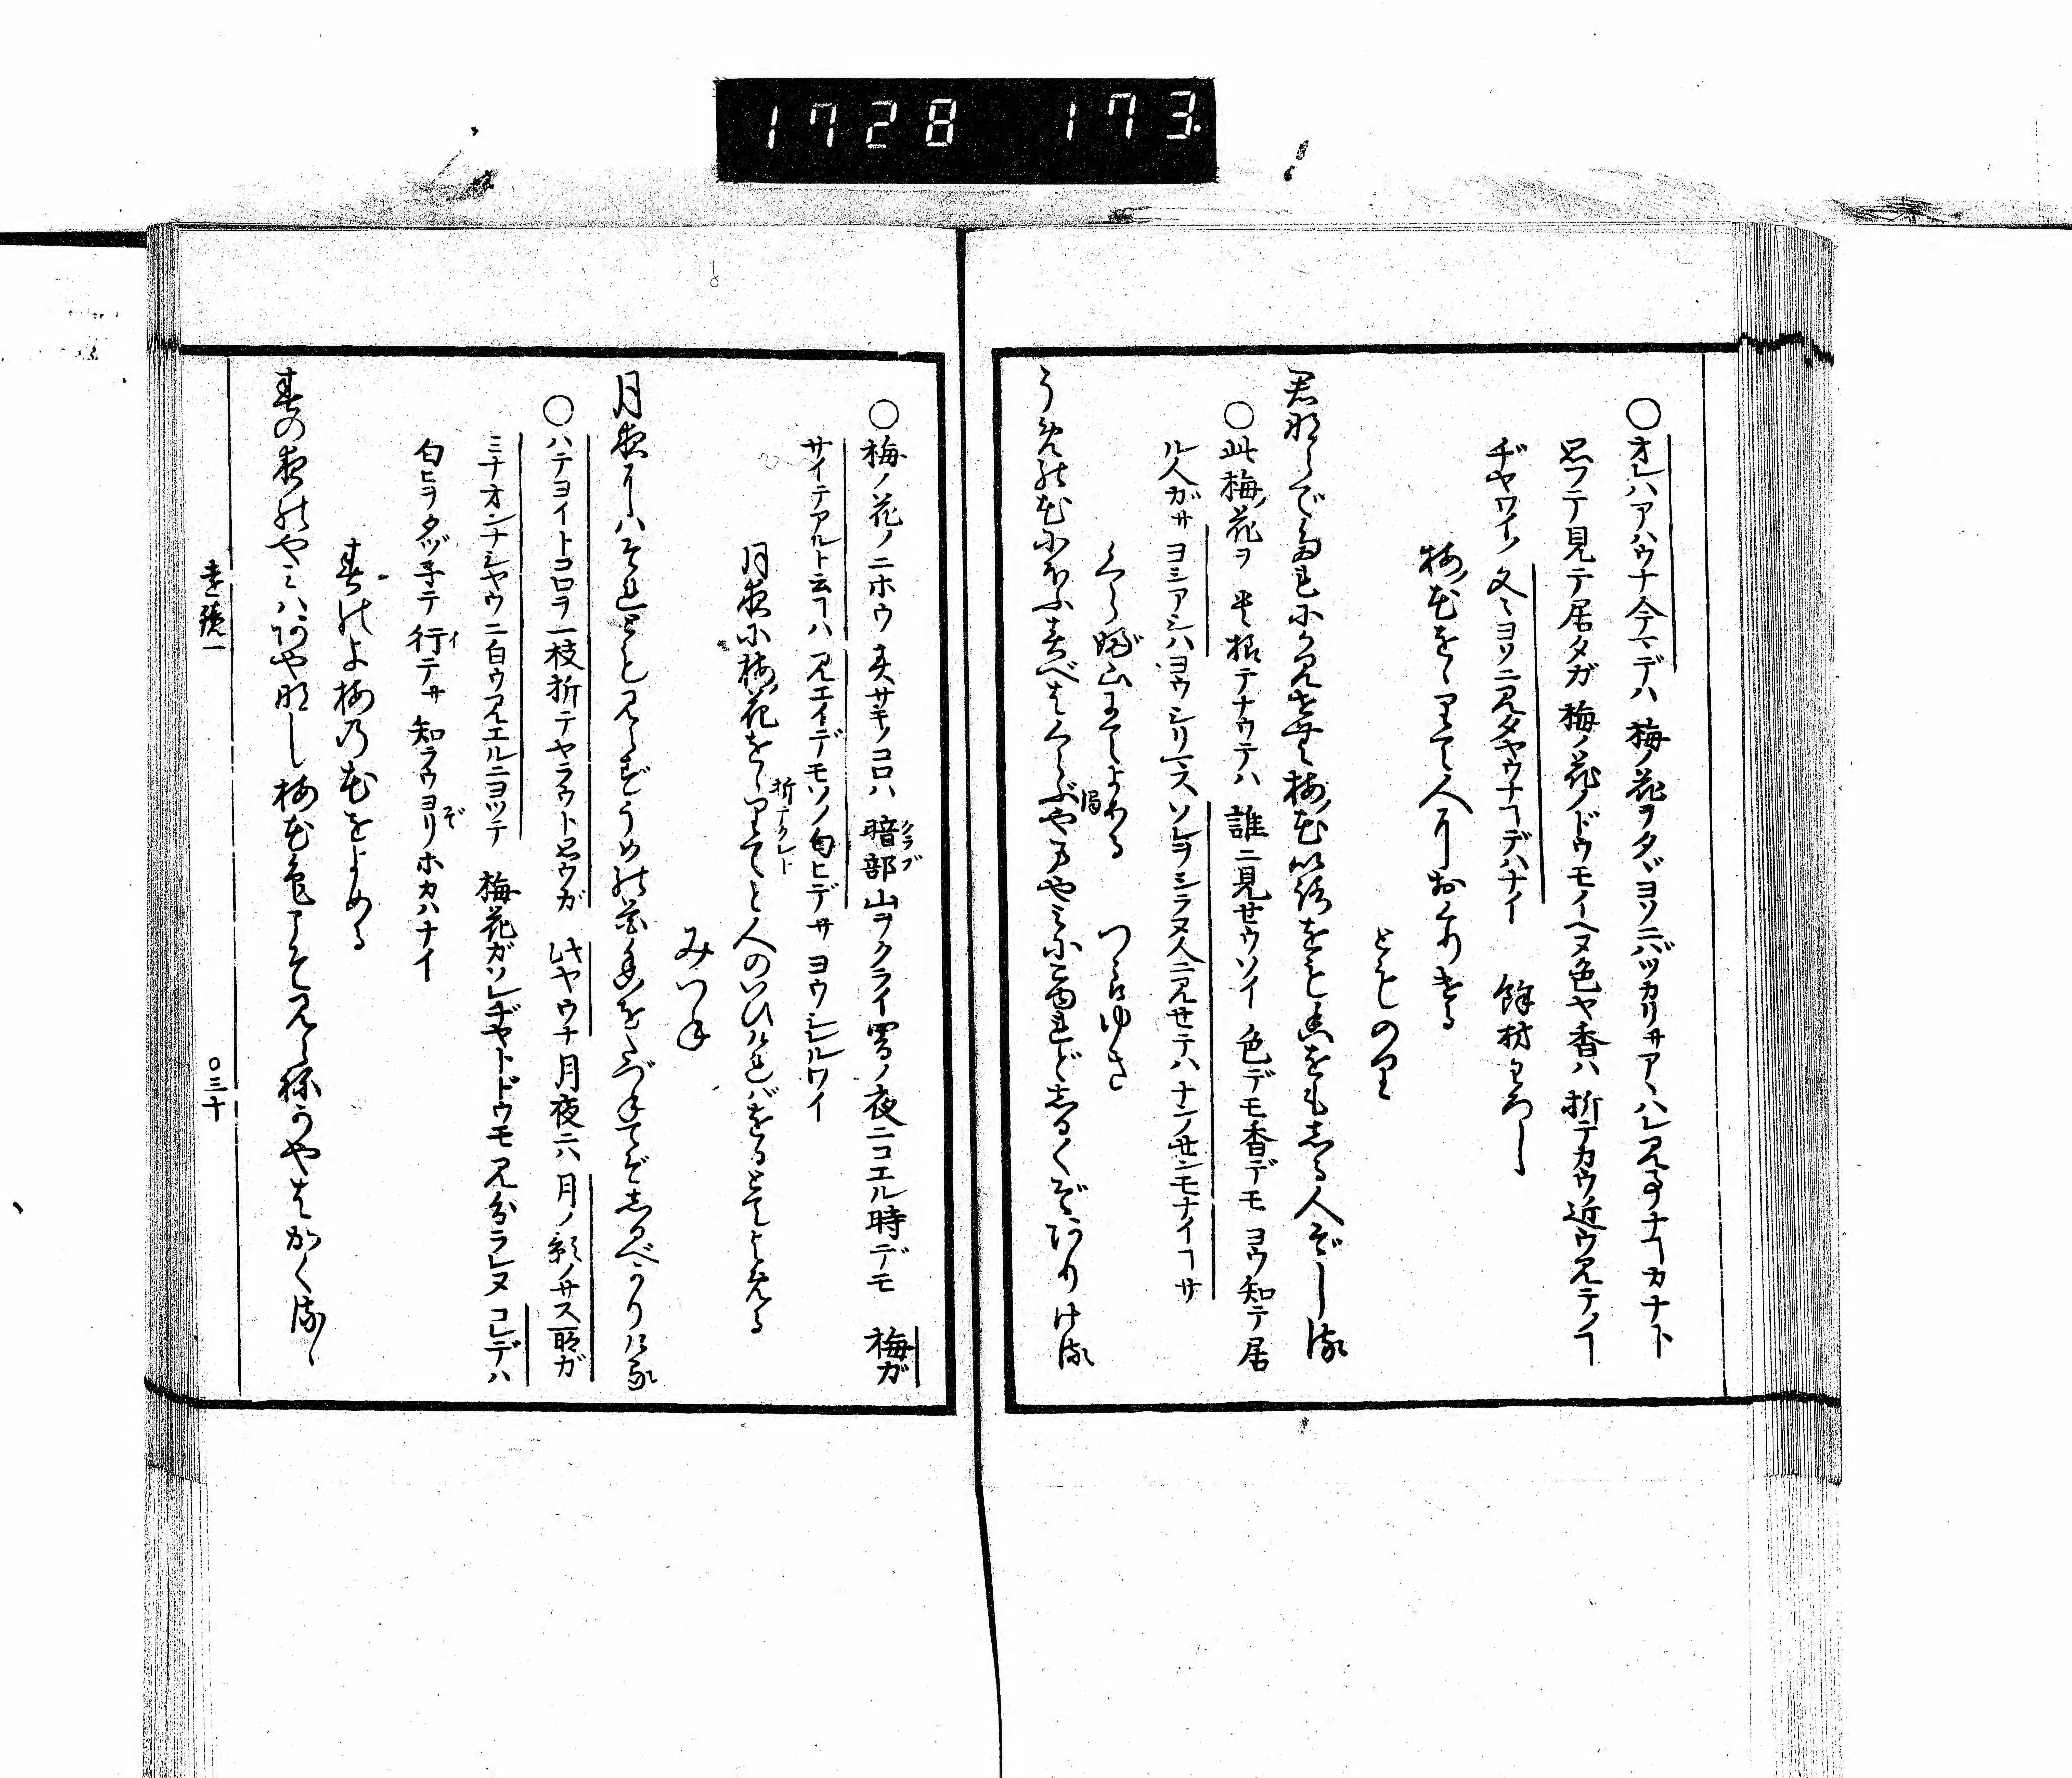 1728 173
○オレハアハウナ今マデハ 梅ノ花ヲタヾヨソニバツカリサアヽハレ見事ナヿカナト
思フテ見テ居タガ 梅ノ花ノドウモイヘヌ色ヤ香ハ 折テカウ近ウ見テノヿ
ヂヤワイノ 久シヨソニ見タヤウナヿデハナイ 餘材わろし
梅花ををりて人におくりける
とものり
君ならで誰にか見せむ梅花色をも香をもしる人ぞしる
○此梅ノ花ヲ 其様テナウテハ 誰ニ見せウソイ 色デモ香デモ ヨウ知テ居
ル人ガサ ヨシアシハヨウシリマス ソレヲシラヌ人ニ見セテハ ナンノセンモナイヿサ
くらぶ山にてよめる つらゆき
うめの花にほふ春べはくらぶやまやみにこゆれどしるくぞ有ける
○梅ノ花ノニホウ 春サキノコロハ 暗部山ヲクライ闇ノ夜ニコエル時デモ 梅ガ
クラブ
サイテアルト云ヿハ 見エイデモソノ匂ヒデサ ヨウシレルワイ
月夜に梅花ををりてと人のいひければをるとてよめる
折テクレト
みつね
月夜にはそれとも見えずうめの花香をたづねてぞしるべかりける
○ハテヨイトコロヲ一枝折テヤラウト思ウガ 此ヤウナ月夜ニハ 月ノ影ノサス所ガ
ミナオンナシヤウニ白ウ見エルニヨツテ 梅花ガソレヂヤトドウモ見分ラレヌ コレデハ
匂ヒヲタヅネテ行テサ 知ラウヨリホカハナイ
イ
ぞ
春のよ梅の花をよめる
春の夜のやみはあやなし梅花色こそ見えねかやはかくるゝ
遠鏡一
○三十